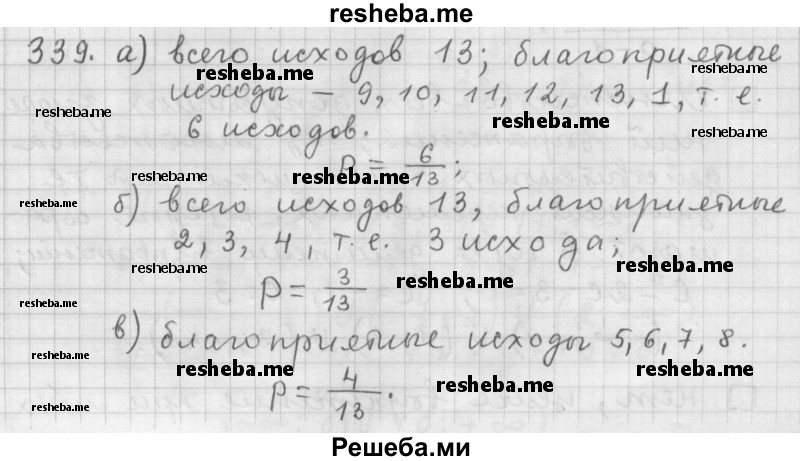 resheba.me
339. а) всего исходов 13; благоприятные
resheba.me resheba.me
исходы – 9, 10, 11, 12, 13, 1, т. е.
resheba.me resheba.me
6 исходов. resheba.me
P = 6/13;
resheba.me resheba.me resheba.me
б) всего исходов 13, благоприятные
resheba.me resheba.me
2, 3, 4, т. е. 3 исхода;
resheba.me resheba.me
P = 3/13
resheba.me resheba.me
resheba.me
в) благоприятные исходы 5, 6, 7, 8.
resheba.me resheba.me resheba.me
P = 4/13.
resheba.me resheba.me
resheba.me resheba.me
Решеба.ми